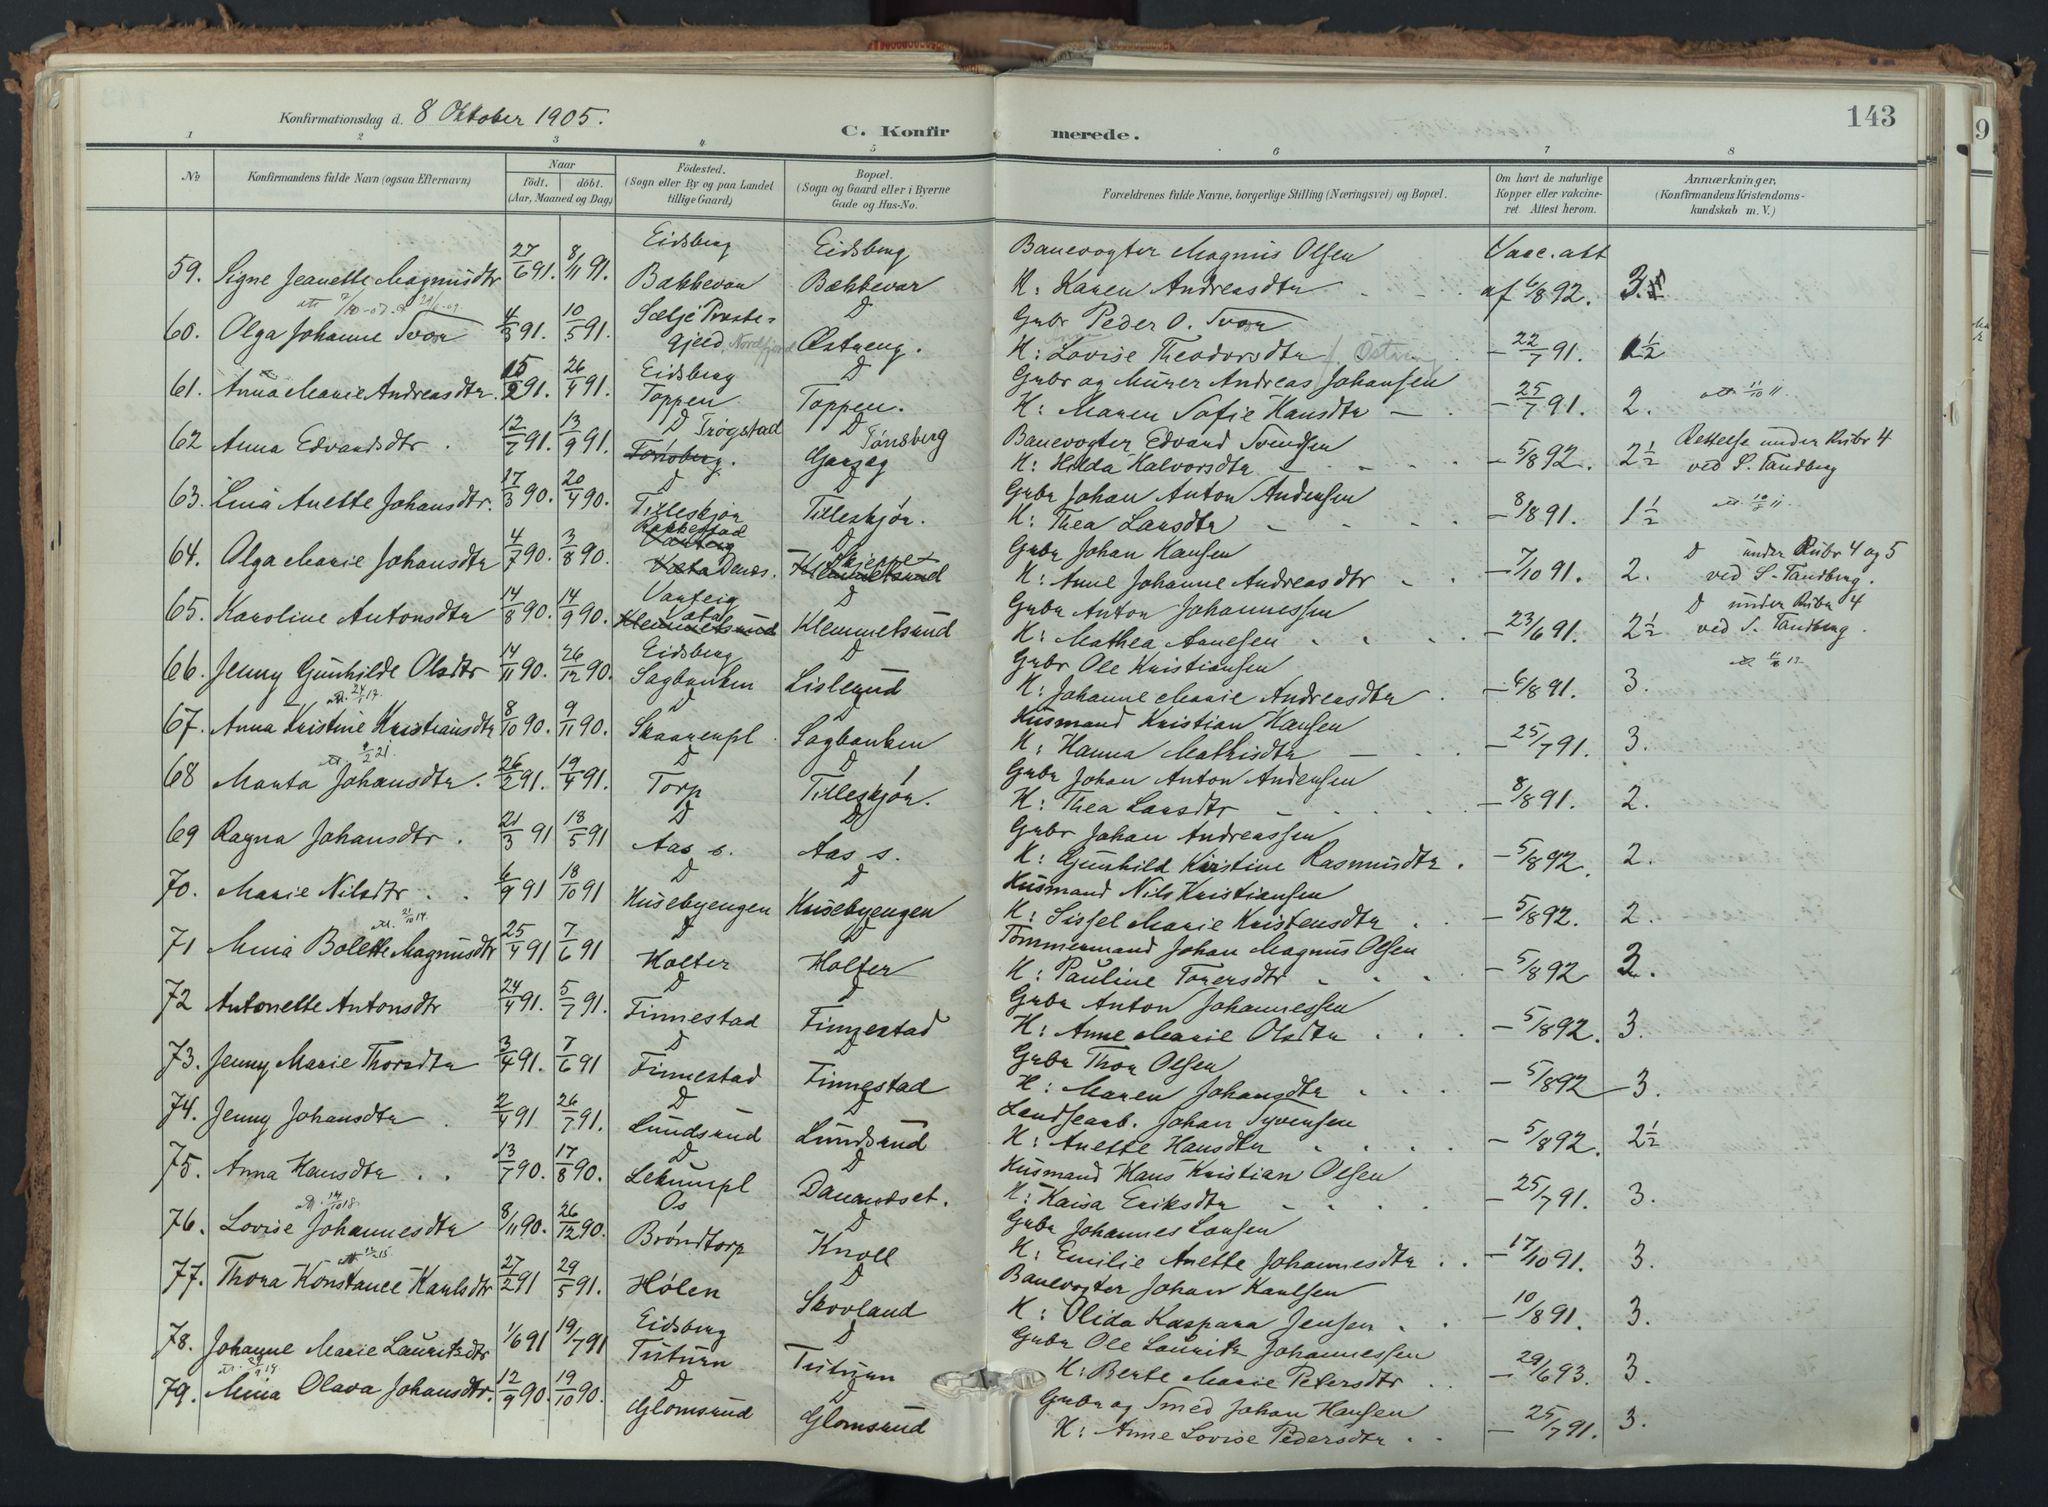 143
Konfirmationsdag d. 8 Oktober 1905.
C. Konfirmerede.
1 2 3 4 5 6 7 8
No
Konfirmandens fulde Navn (ogsaa Efternavn)
Naar
födt. döbt.
(Aar, Maaned og Dag)
Födested.
(Sogn eller By og paa Landet
tillige Gaard)
Bopæl.
(Sogn og Gaard eller i Byerne
Gade og Hus-No.
Forældrenes fulde Navne, borgerlige Stilling (Næringsvei) og Bopæl.
Om havt de naturlige
Kopper eller vakcine-
ret Attest herom.
Anmærkninger,
(Konfirmandens Kristendoms-
kundskab m. V.)
Eidsberg Eidsberg Banevogter Magnus Olsen Vacc. att
59. Signe Jeanette Magnusdtr 27/6 91. 8/11 91. Bakkevar Bakkevar K: Karen Andreasdtr af 6/8 92. 3.
Sælje Præste- D Gubr Peder O. Tvær
60. Olga Johanne 4/3 91. 10/5 91. gjeld, Nordfjord Østreng. K: Lovise Theodorsdtr — 22/7 91. 1 1/2
Eidsberg D Gubr og Murer Andreas Johansen
61. Anna Marie Andreasdtr. 15/2 91. 26/4 91. Toppen Toppen. K: Maren Sofie Hansdtr — 25/7 91. 2.
D Trøgstad D Tønsberg Banevogter Edvard Svendsen Rettelse under Rubr 4
62 Anna Edvardsdtr. 12/7 91. 13/9 91. Tønsberg. K: Hilda Halvorsdtr — 5/8 92. 2 1/2 ved S. Tandberg
D D Gubr Johan Anton Andersen
63. Lina Anette Johansdtr. 17/3 90. 20/4 90. Tilleskjør Tilleskjør. K: Thea Larsdtr — 8/8 91. 1 1/2
Rakkestad D Gubr Johan Hansen D under Rubr 4 og 5
64. Olga Marie Johansdtr 4/7 90. 3/8 90. Klemmetsrud K: Anne Johanne Andreasdtr — 7/10 91. 2. ved S. Tandberg.
Varteig D Gubr Anton Johannessen D under Rubr 4
65. Karoline Antonsdtr 14/8 90. 14/9 90. Klemmetsrud Klemmetsrud K: Mathea Arnesen — 23/6 91. 2 1/2 ved S. Tandberg
Eidsberg D Gubr Ole Kristiansen
66. Jenny Gunhilde Olsdtr 14/11 90. 26/12 90. Sagbanken Lislerud K: Johanne Marie Andreasdtr. — 6/8 91. 3.
D D Husmand Kristian Hansen
67. Anna Kristine Kristiansdtr 8/10 90. 9/11 90. Skaarenpl. Sagbanken K: Hanna Mathisdtr — 25/7 91. 3.
D D Gubr Johan Anton Andersen
68 Marta Johansdtr. 26/2 91. 19/4 91. Torp Tilleskjør. K: Thea Larsdtr — 8/8 91. 2.
D D Gubr Johan Andreassen
69 Ragna Johansdtr. 21/3 91 18/5 91 Aas s. Aas s. K: Gunhild Kristine Rasmusdtr. — 5/8 92. 2.
D D Husmand Nils Kristiansen
70. Marie Nilsdtr. 6/9 91 18/10 91 Husebyengen Husebyengen K: Sissel Marie Kristensdtr — 5/8 92. 2.
D D Tømmermand Johan Magnus Olsen
71 Mina Bolette Magnusdtr 25/4 91 7/6 91 Holter Holter K: Pauline Torersdtr — 5/8 92 3.
D D Gubr Anton Johannessen
72 Antonette Antonsdtr 24/4 91. 5/7 91. Finnestad Finnestad K: Anne Marie Olsdtr — 5/8 92. 3.
D D Gubr Thor Olsen
73. Jenny Marie Thorsdtr 3/4 91. 7/6 91 Finnestad Finnestad K: Maren Johansdtr — 5/8 92 3.
D D Landhearb. Johan Syvensen
74. Jenny Johansdtr 2/4 91 26/7 91. Lundsrud Lundsrud K: Anette Hansdtr — 5/8 92. 2 1/2
D D Husmand Hans Kristian Olsen
75. Anna Hansdtr 13/7 90. 17/8 90. Lekumpl K: Kaisa Eriksdtr — 25/7 91. 3.
Os D Gubr Johannes Larsen
76. Lovise Johannesdtr 8/11 90. 26/12 90. Brøndtorp Knoll K: Emilie Anette Johannesdtr. — 17/10 91. 3.
D Banevogter Johan Karlsen
77. Thora Konstance Karlsdtr 27/2 91 29/5 91. Hølen Skovland K: Olida Kaspara Jensen — 10/8 91. 3.
Eidsberg D Gubr Ole Lauritz Johannessen
78. Johanne Marie Lauritzdtr 1/6 91 19/7 91 Tuturn Tuturn K: Berte Marie Petersdtr — 29/6 93. 3.
D D Gubr og Smed Johan Hansen
79. Mina Olava Johansdtr. 12/9 90. 19/10 90. Glomsrud Glomsrud K: Anne Lovise Pedersdtr — 25/7 91. 3.